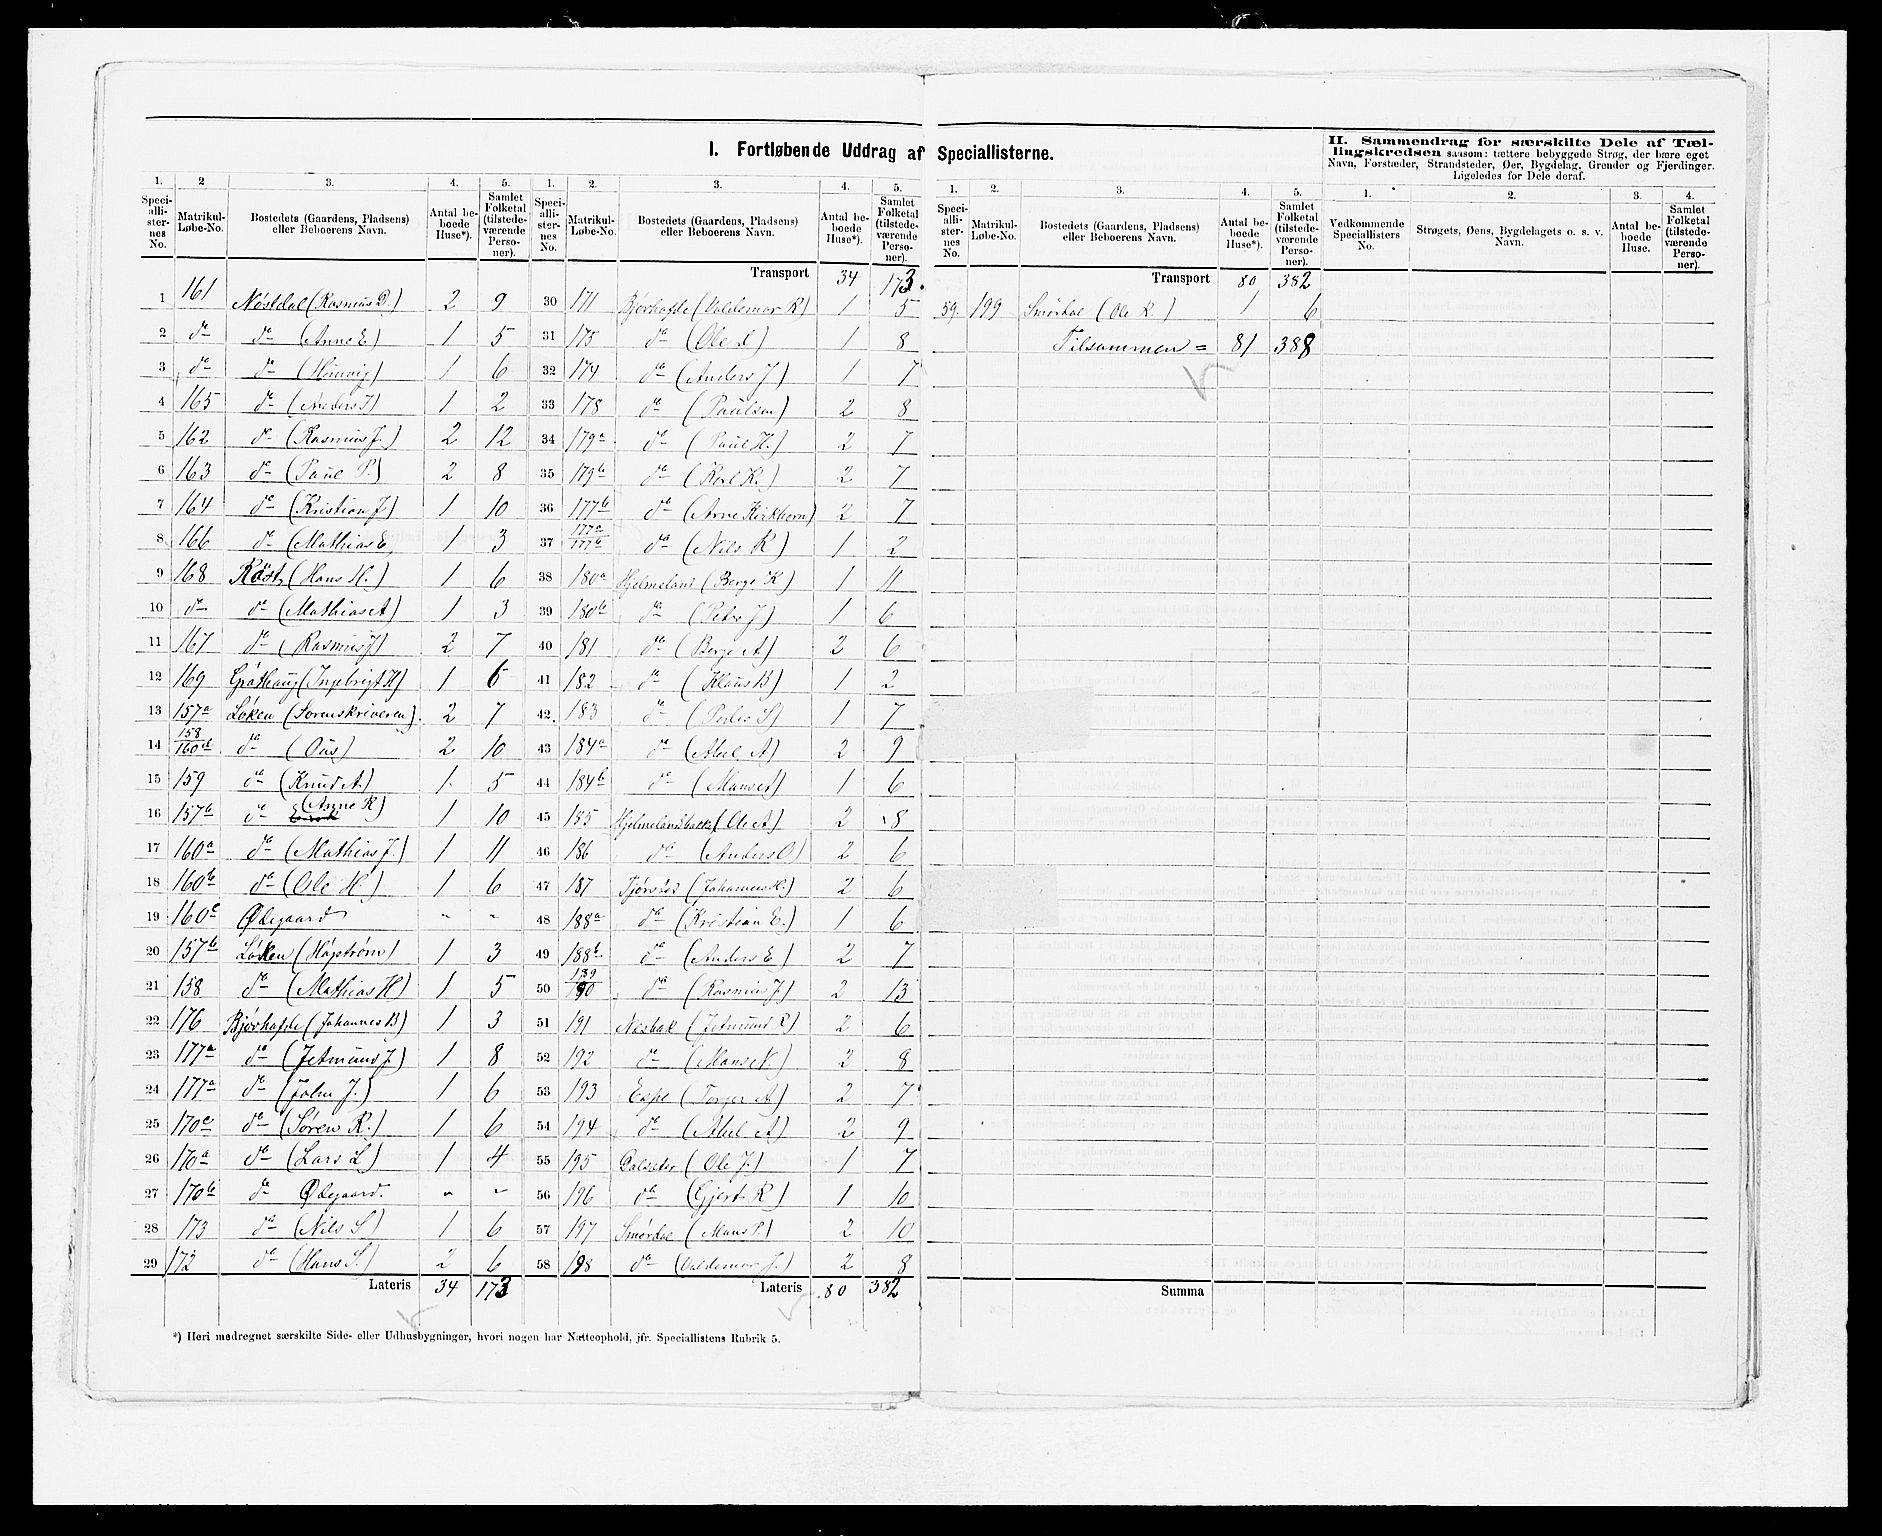 I. Fortløbende Uddrag af Speciallisterne.
1. 2 3. 4. 5.
Speciallisternes No. Matrikul-Løbe-No. Bostedets (Gaardens, Pladsens) eller Beboerens Navn. Antal beboede Huse*). Samlet Folketal (tilstedeværende Personer).
1 161 Nøstdal (Rasmus D.) 2 9
2 do do (Anne E) 1 5
3 do do 1 6
4 165 do (Anders J) 1 2
5 162 do (Rasmus J.) 2 12
6 163 do (Paul P.) 2 8
7 164 do (Kristian J) 1 10
8 166 do (Mathias E) 1 3
9 168 (Hans H.) 1 6
10 do do (Mathias A) 1 3
11 167 do (Rasmus J) 2 7
12 169 (Ingebrigt H) 1 6
13 157a Løken (Sorenskriveren). 2 7
14 158 do (Ous) 2 10
15 159 do (Knud A) 1 5
16 157b do (Anne K) 1 10
17 160a do (Mathias J.) 1 11
18 160b do (Ole H.) 1 6
19 160c Ødegaard " "
20 157b Løken (Højstrøm) 1 3
21 158 do (Mathias H) 1 5
22 176 Bjørhafde (Johannes B) 1 3
23 177a do (Jetmund J.) 1 8
24 177a do (John J.) 1 6
25 170c do (Søren R.) 1 6
26 170a do (Lars L) 1 4
27 170b do Ødegaard. " "
28 173 do (Nils S) 1 6
29 172 do (Hans S.) 2 6
Lateris 34 173
*) Heri medregnet særskilte Side- eller Udhusbygninger, hvori nogen har Natteophold, jfr. Speciallistens Rubrik 5.
1. 2. 3. 4. 5.
Speciallisternes No. Matrikul-Løbe-No. Bostedets (Gaardens, Pladsens) eller Beboerens Navn. Antal beboede Huse*). Samlet Folketal (tilstedeværende Personer).
Transport 34 173
30 171 Bjørhafde (Valdemar R) 1 5
31 175 do 1 8
32 174 do (Anders J) 1 7
33 178 do (Paulson) 2 8
34 179a do (Paul H.) 2 7
35 179b do (Karl K.) 2 7
36 177b do (Arne Kirkhorn) 2 7
37 177a 177b do (Nils R) 1 2
38 180a Hjelmeland (Berge K) 1 11
39 180b do (Peter J) 1 6
40 181 do (Berge A) 2 6
41 182 do (Klaus B) 1 2
42. 183 do (Peder S) 1 7
43 184a do (Abel A) 2 9
44 184b do (Mons A) 1 6
45 185 Hjelmelandsbakke (Ole A) 2 8
46 186 do (Anders O) 2 6
47 187 (Johannes H.) 2 6
48 188a do (Kristian E.) 1 6
49 188b do (Anders E) 2 7
50 189 190 do (Rasmus J.) 2 13
51 191 Nesbak (Jetmund R) 2 6
52 192 do (Mons N.) 2 8
53 193 Espe (Torger A.) 2 7
54 194 do (Abel A) 2 9
55 195 Dalsæter (Ole J.) 1 7
56 196 do (Gjert R) 1 10
57 197 Smørdal (Mons P.) 2 10
58 198 do (Valdemar J.) 2 8
Lateris 80 382
1. 2. 3. 4. 5.
Speciallisternes No. Matrikul-Løbe-No. Bostedets (Gaardens, Pladsens) eller Beboerens Navn. Antal beboede Huse*). Samlet Folketal (tilstedeværende Personer).
Transport 80 382
59. 199 Smørdal (Ole R) 1 6
Tilsammen = 81 388
Summa
II. Sammendrag for særskilte Dele af Tællingskredsen saasom: tættere bebyggede Strøg, der bære eget
Navn, Forstæder, Strandsteder, Øer, Bygdelag, Grender og Fjerdinger.
Ligeledes for Dele deraf.
1. 2. 3. 4.
Vedkommende Speciallisters No. Strøgets, Øens, Bygdelagets o. s. v. Navn. Antal beboede Huse. Samlet Folketal (tilstedeværende Personer).